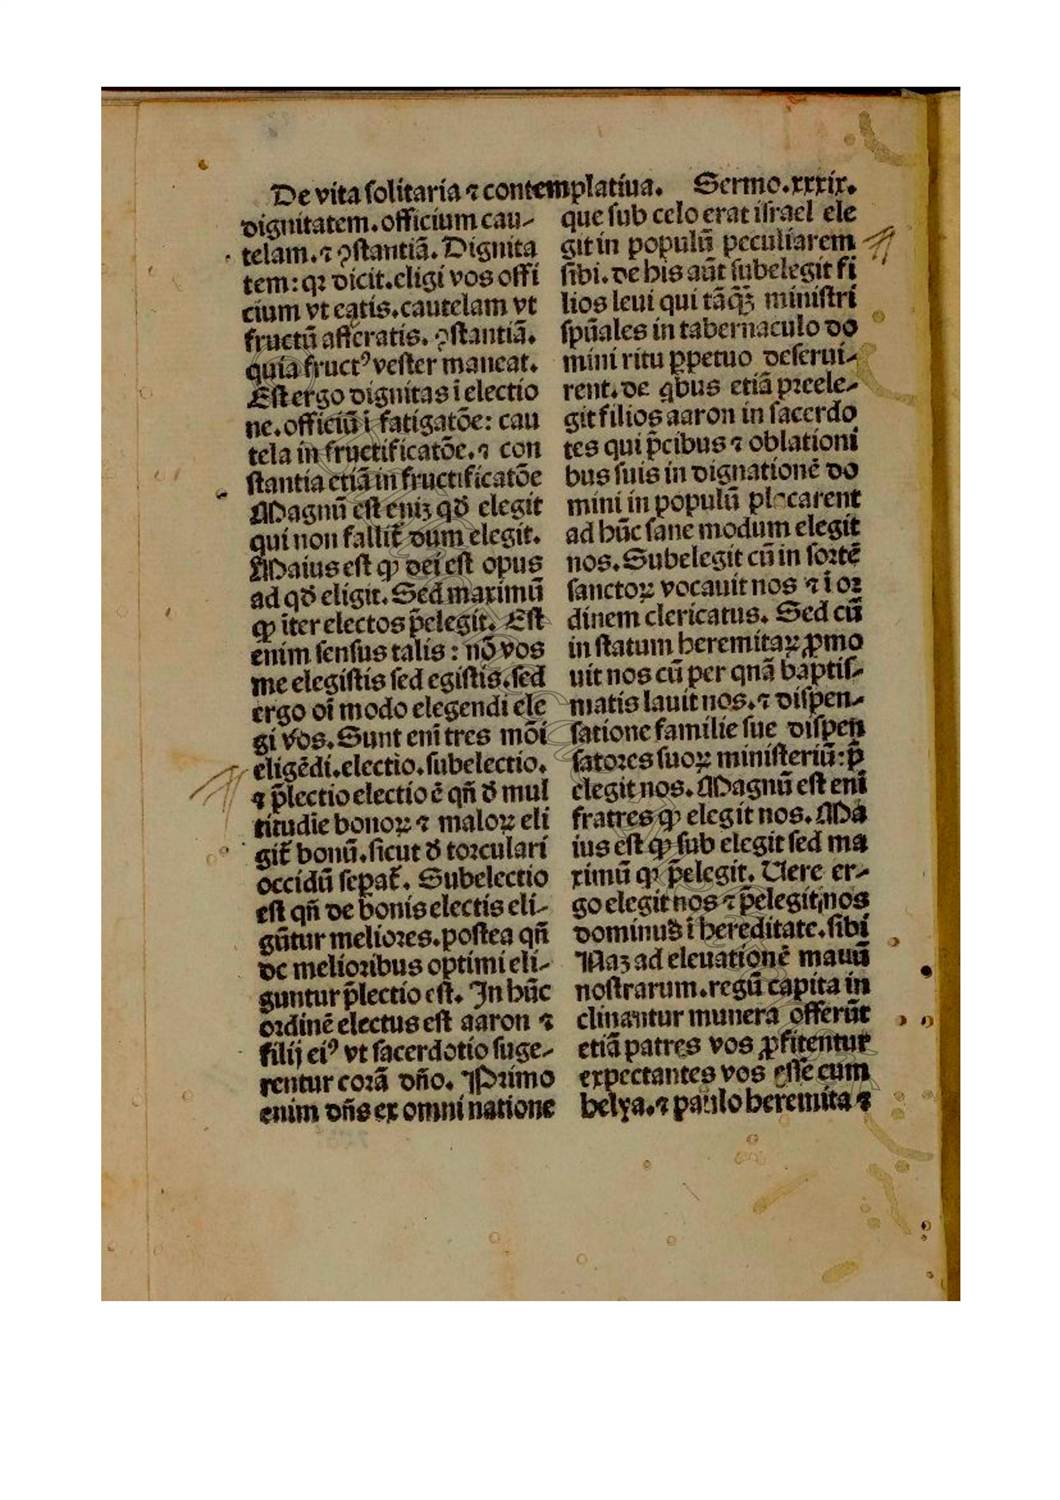 De vita ſolitaria ⁊ contemplatiua. Sermo.xxxix.
dignitatem.officium cau-
telam.⁊ ꝯſtantiã. Dignita
tem: qꝛ dicit.eligi vos offi
cium vt eatis.cautelam vt
fructũ afferatis. ꝯſtantiã.
quia fructꝰ veſter maneat.
Eſt ergo dignitas ĩ electio
ne.officiũ ĩ fatigatõe: cau
tela in fructificatõe.⁊ con
ſtantia etiã in fructificatõe
Magnũ eſt eniꝫ qď elegit
qui non fallit̃ dum elegit.
Maius eſt ꝙ dei eſt opus
ad qď eligit. Sed maximũ
ꝙ ĩter electos p̃elegit. Eſt
enim ſenſus talis : nõ vos
me elegiſtis ſed egiſtis.ſed
ergo oĩ modo elegendi ele
gi vos. Sunt enĩ tres mõi
eligẽdi.electio.ſubelectio.
⁊ p̃lectio electio ẽ qñ ď mul
titudĩe bonoꝝ ⁊ maloꝝ eli
git̃ bonũ.ſicut ď toꝛculari
occidũ ſepat̃. Subelectio
eſt qñ de bonis electis eli-
gũtur melioꝛes.poſtea qñ
de melioꝛibus optimi eli-
guntur p̃lectio eſt. In hũc
oꝛdinẽ electus eſt aaron ⁊
filij eiꝰ vt ſacerdotio fuge-
rentur corã dño. Primo
enim dñs ex omni natione
que ſub celo erat iſrael ele
git in populũ peculiarem
ſibi. de his aũt ſubelegit fi
lios leui qui tãꝗꝫ miniſtri
ſpũales in tabernaculo do
mini ritu ꝑpetuo deſerui-
rent. de qbus etiã pꝛeele-
git filios aaron in ſacerdo
tes qui p̃cibus ⁊ oblationi
bus ſuis in dignationẽ do
mini in populũ placarent
ad hũc ſane modum elegit
nos. Subelegit cũ in ſoꝛtẽ
ſanctoꝝ vocauit nos ⁊ ĩ oꝛ
dinem clericatus. Sed cũ
in ſtatum heremitaꝝ ꝓmo
uit nos cũ per qnã baptiſ-
matis lauit nos. ⁊ diſpen-
ſatione familie ſue diſpen
ſatoꝛes ſuoꝝ miniſteriũ: p̃
elegit nos. Magnũ eſt enĩ
fratres ꝙ elegit nos. Ma
ius eſt ꝙ ſub elegit ſed ma
ximũ qꝛ p̃elegit. Uere er-
go elegit nos ⁊ p̃elegit nos
dominus ĩ hereditate.ſibi
Naꝫ ad eleuationẽ manũ
noſtrarum.regũ capita in
clinantur munera offerũt
etiã patres vos ꝓfitentur
expectantes vos eſſe cum
helya.⁊ paulo heremita ⁊